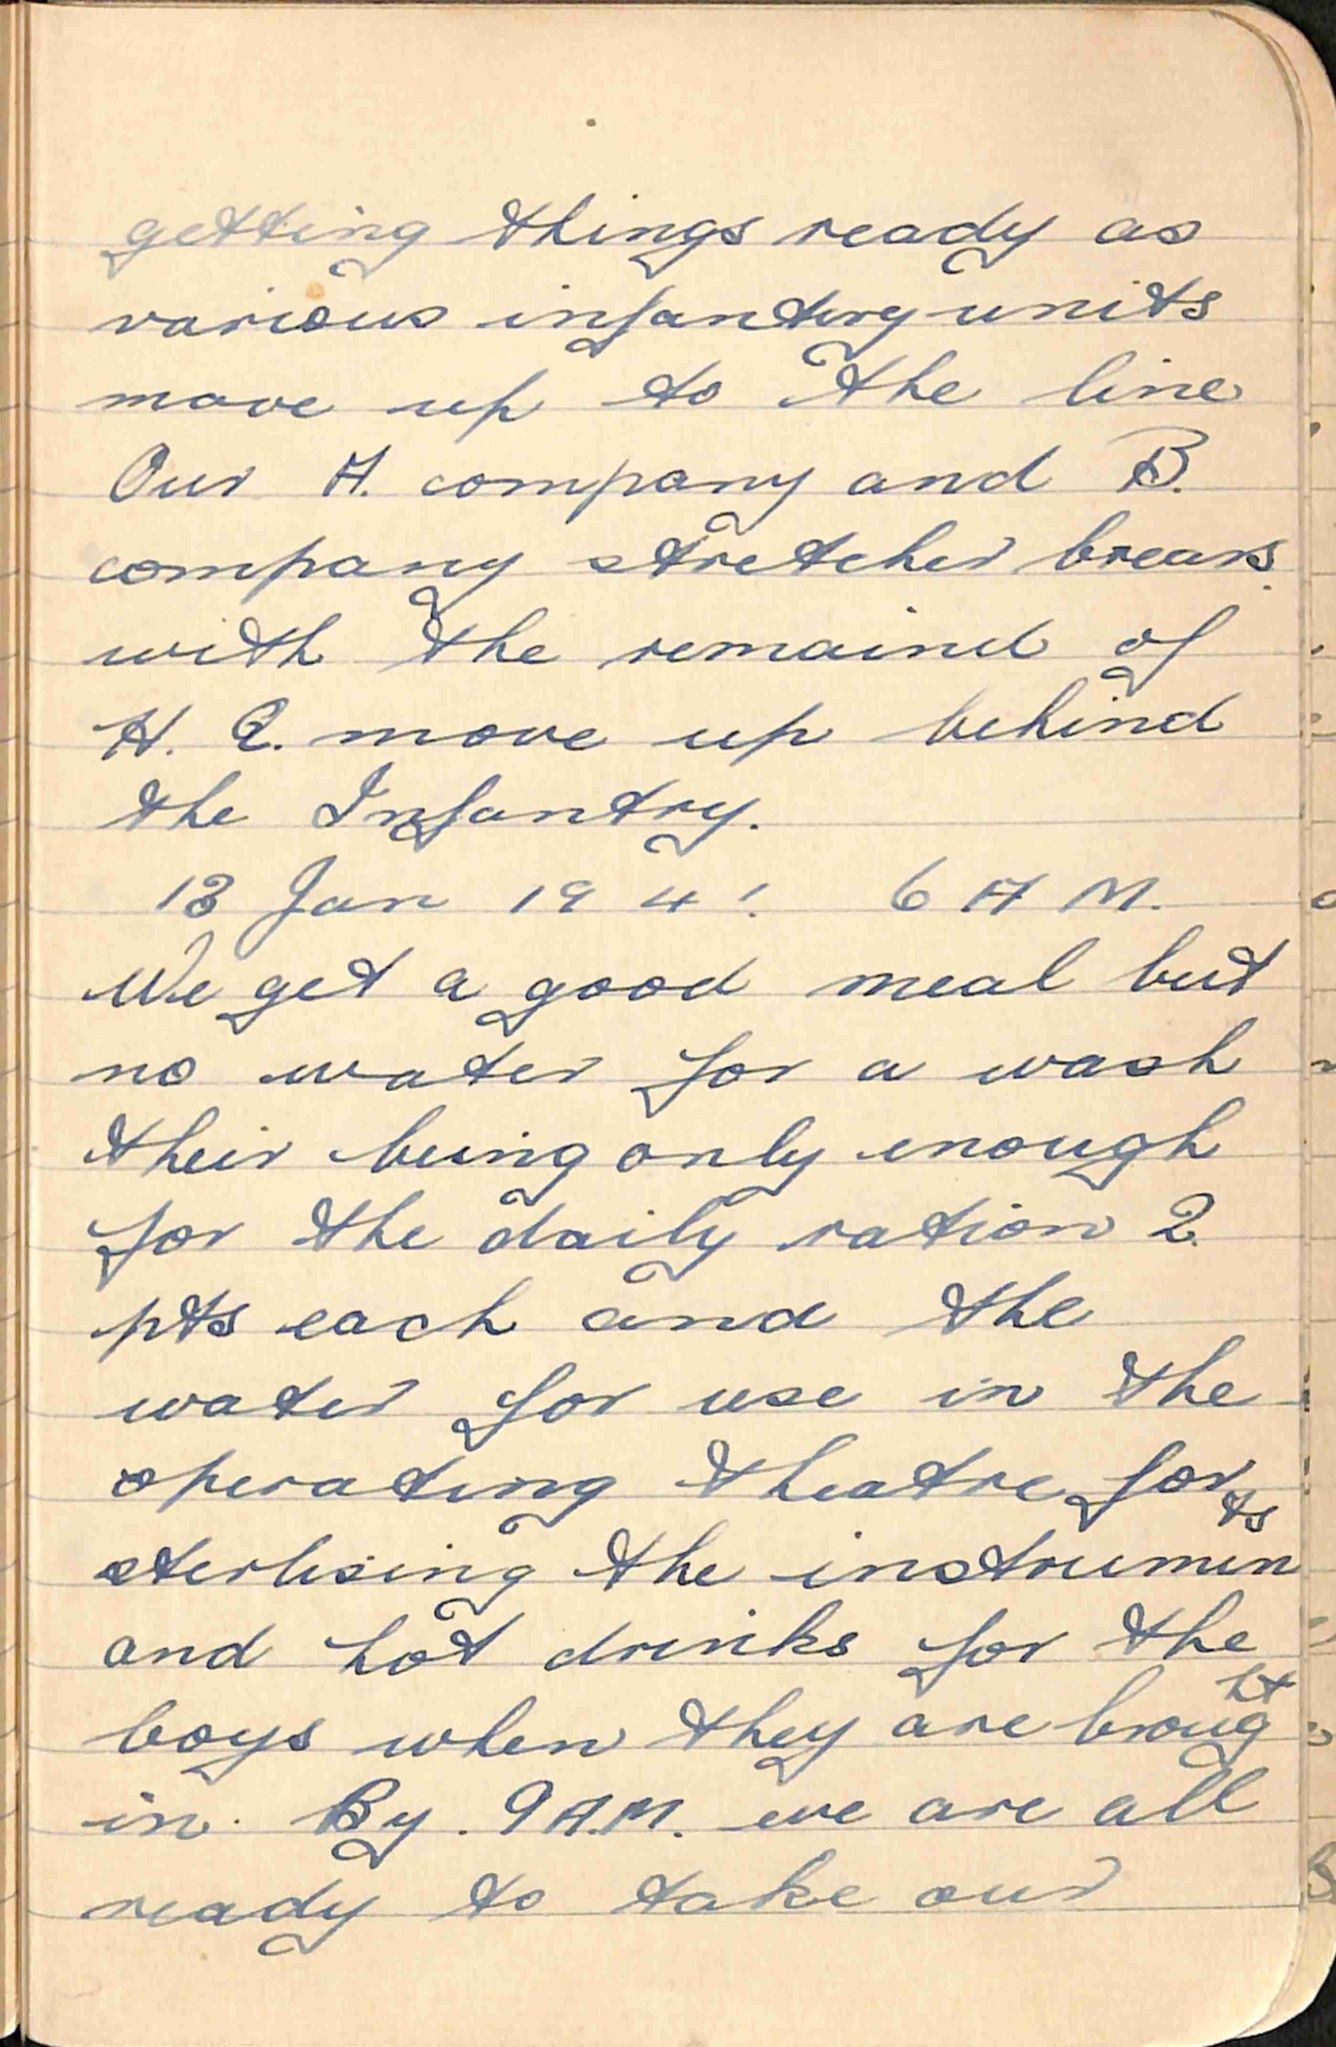 getting things ready as
various infantry units
move up to the line
Our A. company and B.
company stretcher brears
with the remaind of
H. Q. move up behind
the Infantry.
13 Jan 1941. 6 AM.
We get a good meal but
no water for a wash
their being only enough
for the daily ration 2
pts each and the
water for use in the
operating theatre for
sterlising the instruments
and hot drinks for the
boys when they are brought
in. By. 9 A.M. we are all
ready to take our